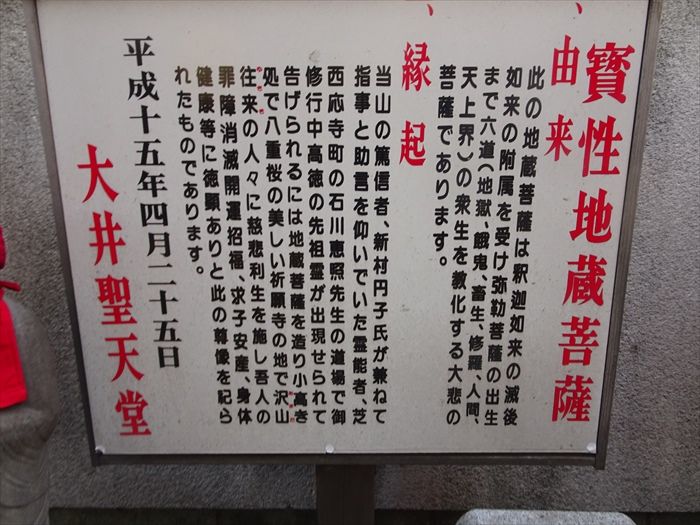 寳性地蔵菩薩
、由来
此の地蔵菩薩は釈迦如来の滅後
如来の附属を受け弥勒菩薩の出生
まで六道(地獄、餓鬼、畜生、修羅、人間、
天上界)の衆生を教化する大悲の
菩薩であります。
、縁起
当山の篤信者、新村円子氏が兼ねて
指事と助言を仰いでいた霊能者、芝
西応寺町の石川恵照先生の道場で御
修行中高徳の先祖霊が出現せられて
告げられるには地蔵菩薩を造り小高き
処で八重桜の美しい祈願寺の地で沢山
往来の人々に慈悲利生を施し吾人の
罪障消滅開運招福、求子安産、身体
健康等に徳顕ありと此の尊像を祀ら
れたものであります。
平成十五年四月二十五日
大井聖天堂